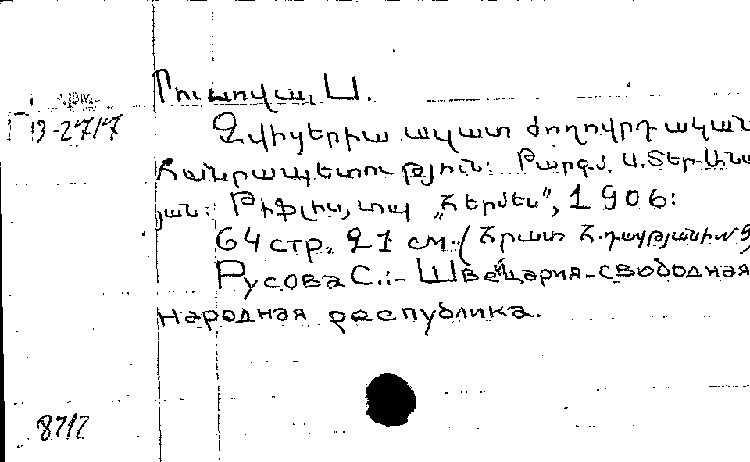 Ռուսովա, Ս.
Г 19-2717
Զվիցերիա ազատ ժողովրդական
հանրապետություն: Թարգմ. Ա. Տեր-Ան
յան: Թիֆլիս, տպ „Հերմես“, 1906:
64 стр. 21 см. (Հրատ Հ.
Русова С.:- Швейцария-свободная
народная республика.
8717